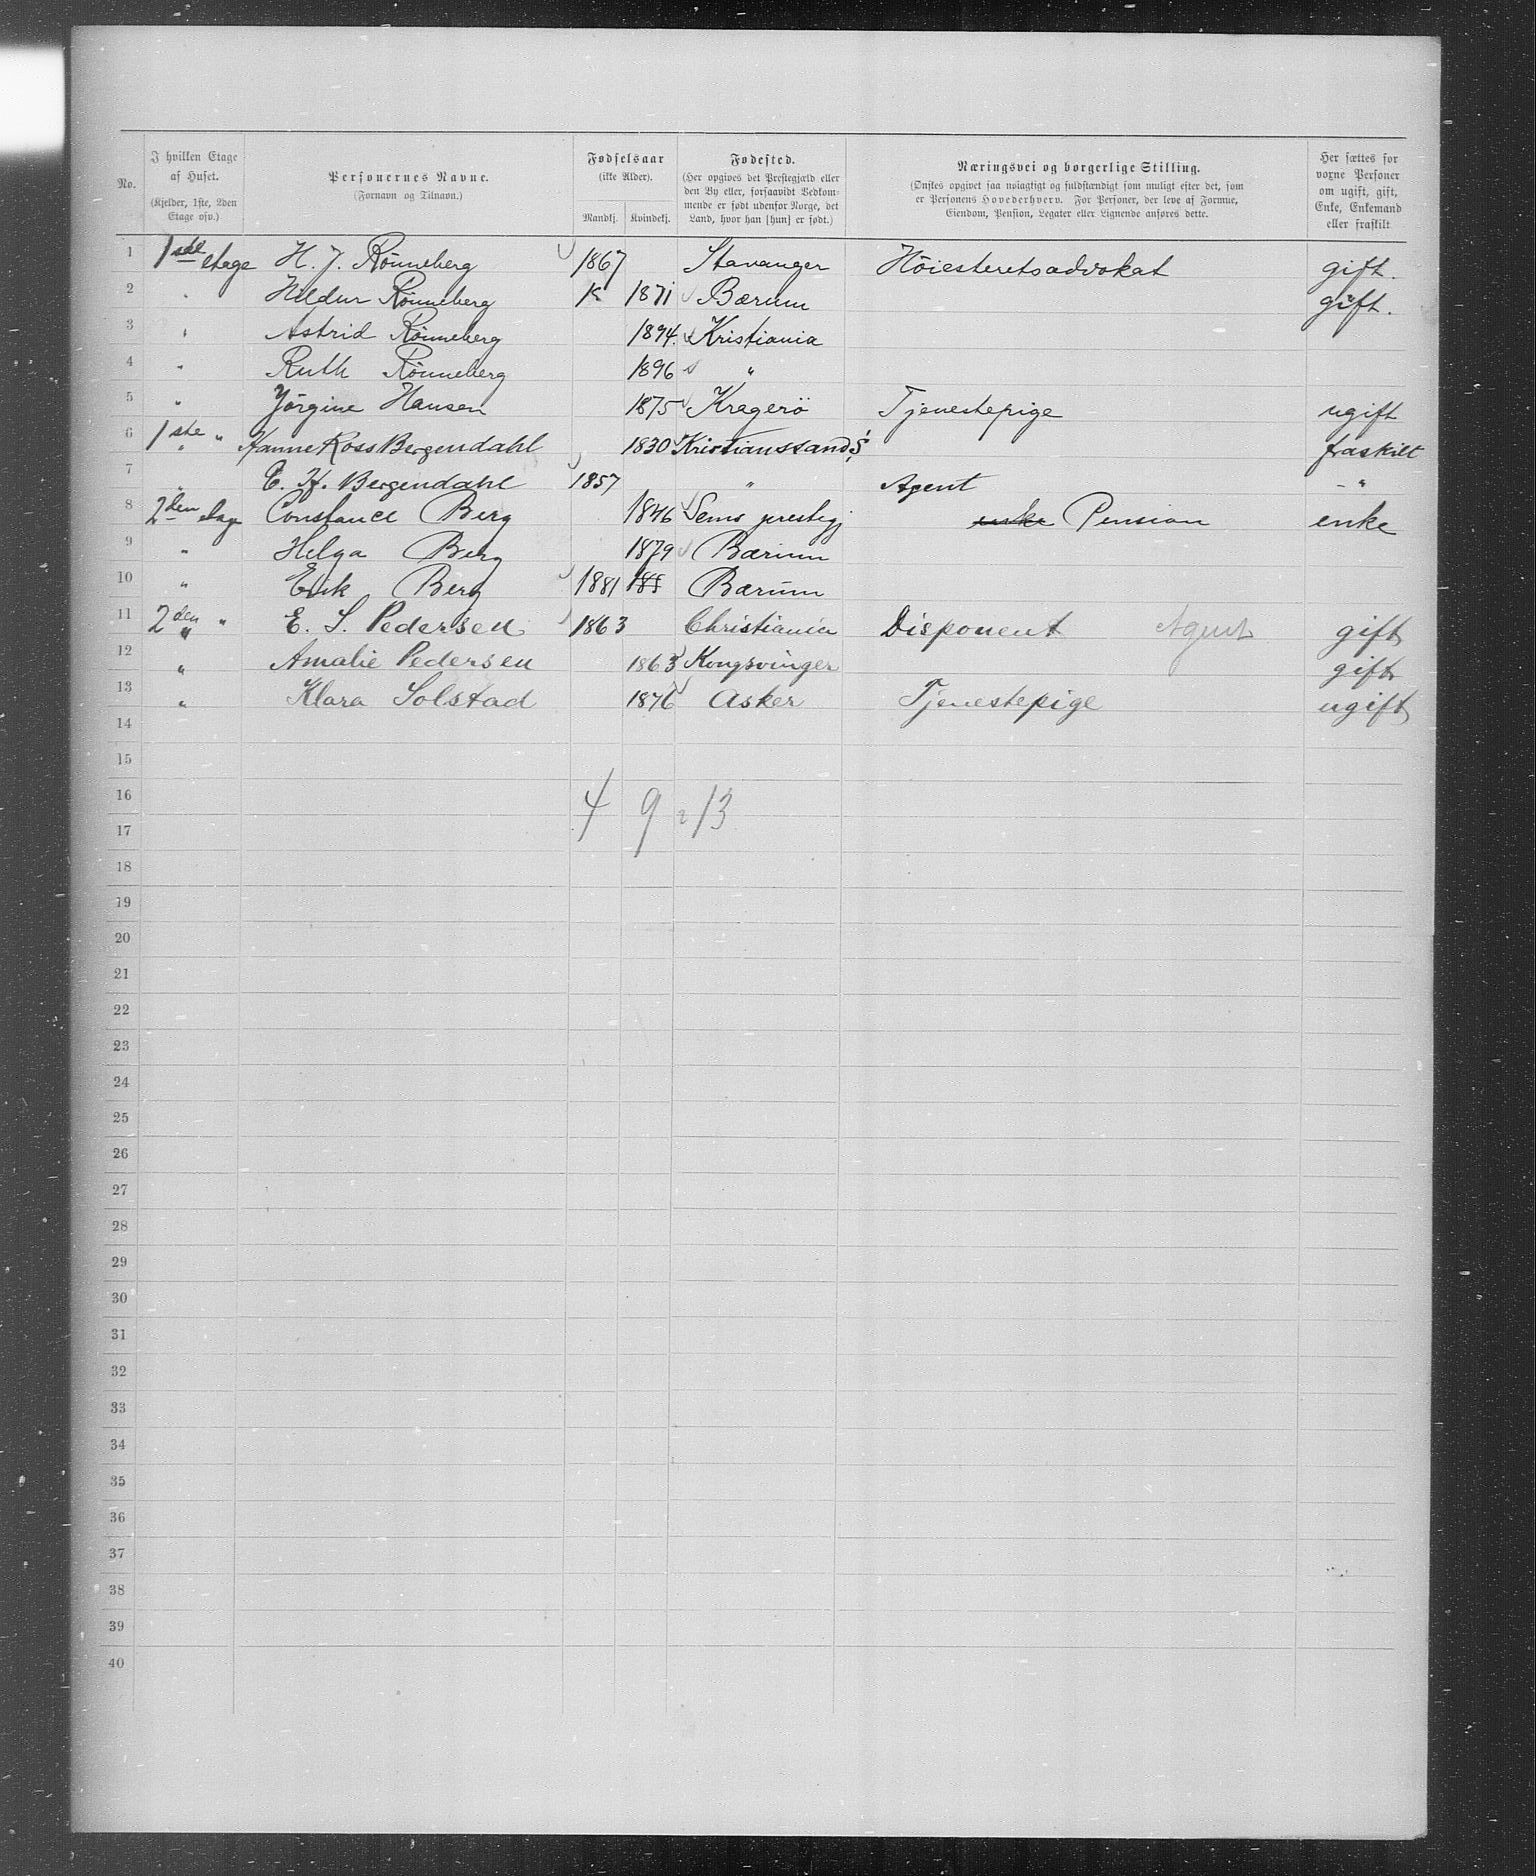 No.
I hvilken Etage af Huset. (Kjelder, 1ste, 2den Etage osv.)
Personernes Navne. (Fornavn og Tilnavn.)
Fødselsaar (ikke Alder). Mandkj. Kvindekj.
Fødested. (Her opgives det Prestegjæld eller den By eller, forsaavidt Vedkommende er født udenfor Norge, det Land, hvor han [hun] er født.)
Næringsvei og borgerlige Stilling. (Ønskes opgivet saa nøiagtigt og fuldstændigt som muligt efter det, som er Personens Hovederhverv. For Personer, der leve af Formue, Eiendom, Pension, Legater eller Lignende anføres dette.)
Her sættes for vorne Personer om ugift, gift, Enke, Enkemand eller fraskilt
1 1ste etage H. J. Rönneberg 1867 Stavanger Höiesteretsadvokat gift.
2 " Hildur Rönneberg K 1871 Bærum gift.
3 " Astrid Rönneberg 1894. Kristiania
4 " Ruth Rönneberg 1896 "
5 " Jörgine Hansen 1875 Kragerö Tjenestepige ugift
6 1ste " " Hanne Ross Bergendahl 1830 Kristianssand S. fraskilt
7 " C. H. Bergendahl 1857 " Agent - "
8 2den etage Constance Berg 1846 Sems prestegj enke Pension enke
9 " Helga Berg 1879 Bærum
10 " Erik Berg 1881 188 Bærum
11 2den " " E. S. Pedersen 1863 Christiania Disponent Agent gift
12 " Amalie Pedersen 1863 Kongsvinger gift
13 " Klara Solstad 1876 Asker Tjenestepige ugift
14
15
16
4 9 = 13
17
18
19
20
21
22
23
24
25
26
27
28
29
30
31
32
33
34
35
36
37
38
39
40